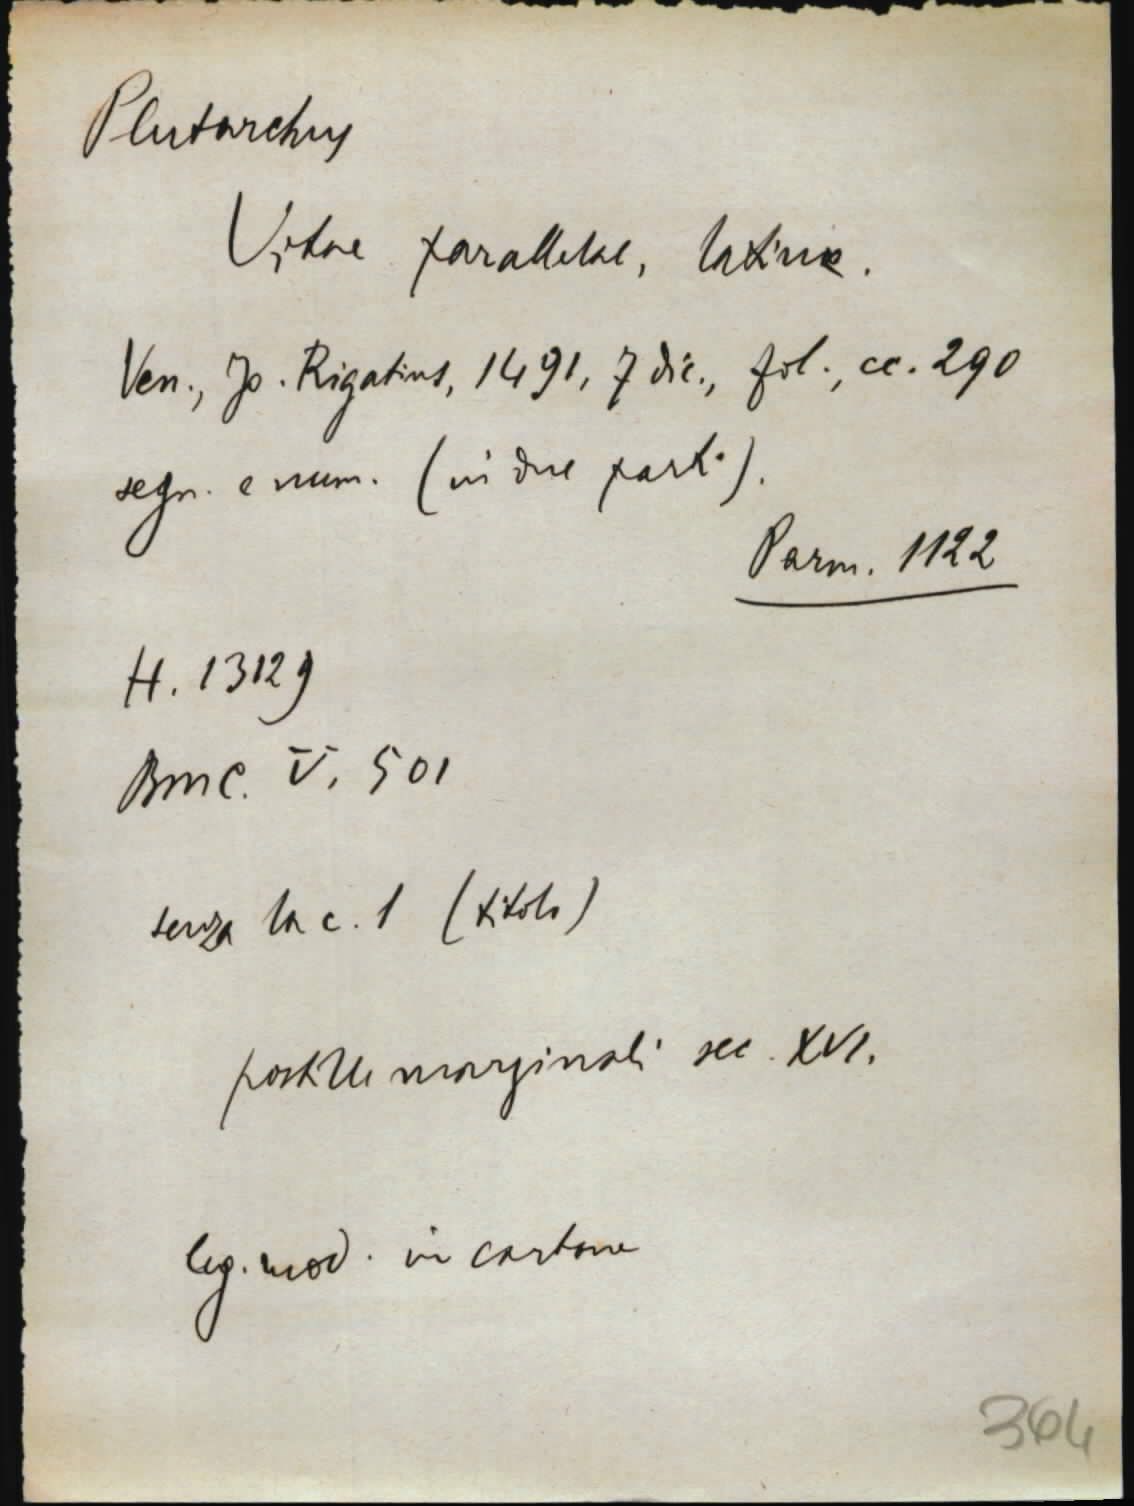 Plutarchus
Vitae parallelae, latine.
Ven., Jo. Rigatius, 1491, 7 dic., fol., cc. 290
segn. e num. (in due parti).
Parm. 1122
H. 13129
BMC. V, 501
senza la c. 1 (titolo)
postille marginali sec. XVI.
leg. mod. in cartone
364